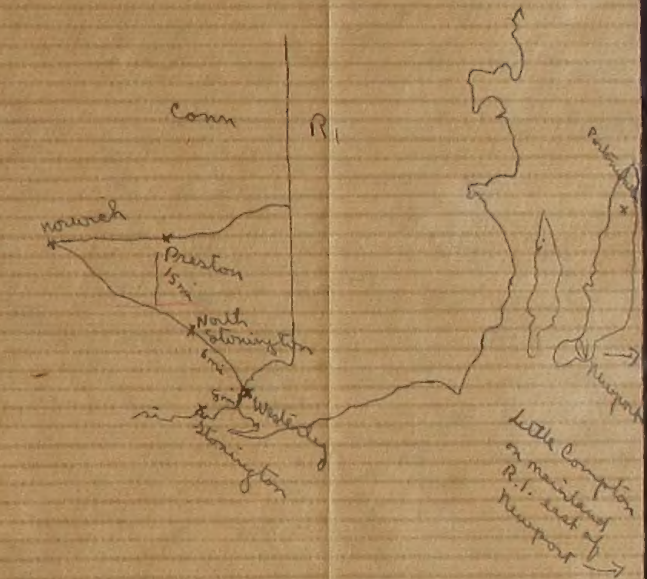 Conn
R.I.
Norwich
Preston
15 mi
North
Stonington
6 mi
Westerley
5 mi
Stonington
Newport
Little Compton
on mainland
R.I. east of
Newport